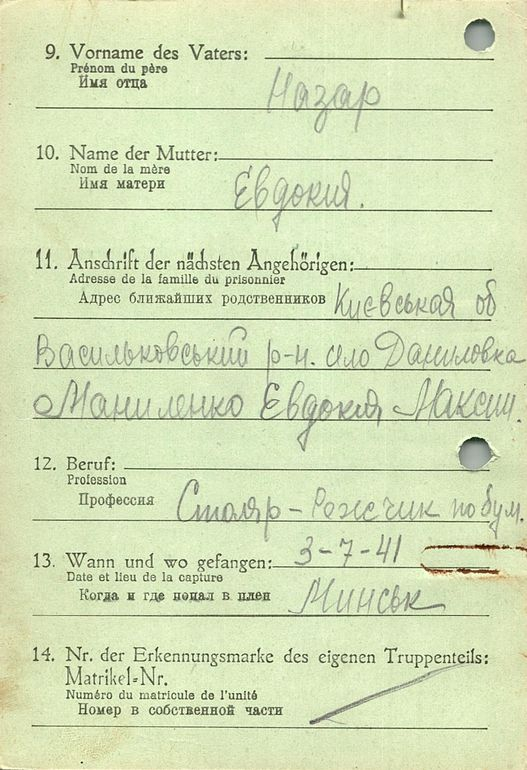 9. Vorname des Vaters:
Prénom du père
Имя отца
Назар
10. Name der Mutter:
Nom de la mère
Имя матери
Евдокия.
11. Anschrift der nächsten Angehörigen:
Adresse de la famille du prisonnier
Адрес ближайших родственников Києвськая об
Васильковський р-н. село Даниловка
Маниленко Евдокия Максим.
12. Beruf:
Profession
Профессия
Столяр - Режчик по бум.
13. Wann und wo gefangen: 3-7-41
Date et lieu de la capture
Когда и где попал в плен Минськ
14. Nr. der Erkennungsmarke des eigenen Truppenteils:
Matrikel-Nr.
Numéro du matricule de l'unité
Номер в собственной части